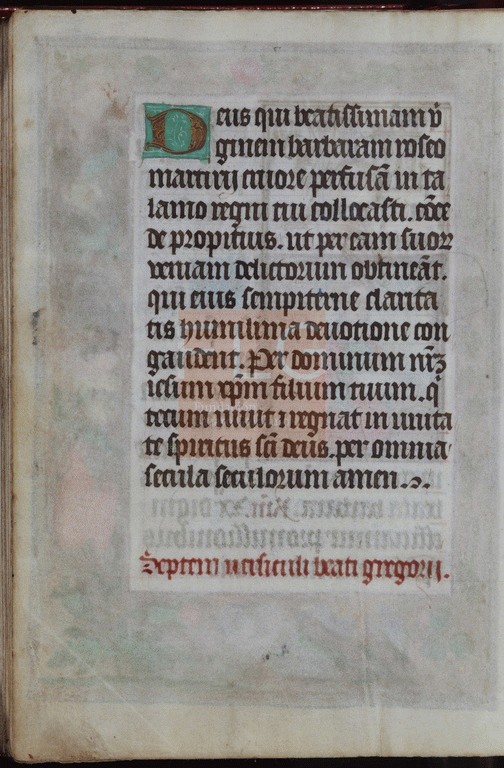 Deus qui beatissimam v̄
ginem barbaram roseo
martirij cruore perfusā in ta
lamo regni tui collocasti. cōce
de propitius. ut per eam suoꝝ
veniam delictorum obtineāt.
qui eius sempiterne clarita
tis humilima deuotione con
gaudent. Per dominum nr̄ꝫ
iesum xp̄m filium tuum. q̄
tecum uiuit ⁊ regnat in unita
te spiritus sc̄i deus. per omnia
secula seculorum amen.
Septem uersiculi beati gregorij.